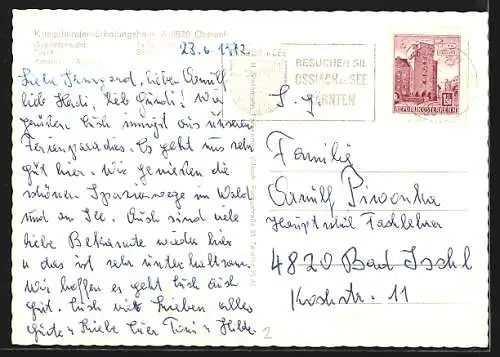 Kriegsblinden-Erholungsheim
Ossiach
23.6.1972
BESUCHEN SIE
OSSIACH SEE
KÄRNTEN
REPUBLIK ÖSTERREICH
Liebe Irmgard, lieber Arnulf
lieb Hedi, lieb Gundi! Wir
grüßen Euch innigst aus unserem
Ferienparadies. Es geht uns sehr
gut hier. Wir genießen die
schönen Spazierwege im Wald
und am See. Auch sind viele
liebe Bekannte wieder hier
u das ist sehr unterhaltsam.
Wir hoffen es geht Euch auch
gut. Euch viel Lieben alles
Gute u Liebe Eure Toni u Hilde
S. g.
Familie
Arnulf Piwonka
Hauptschul Fachlehrer
4820 Bad Ischl
Kochstr. 11
2